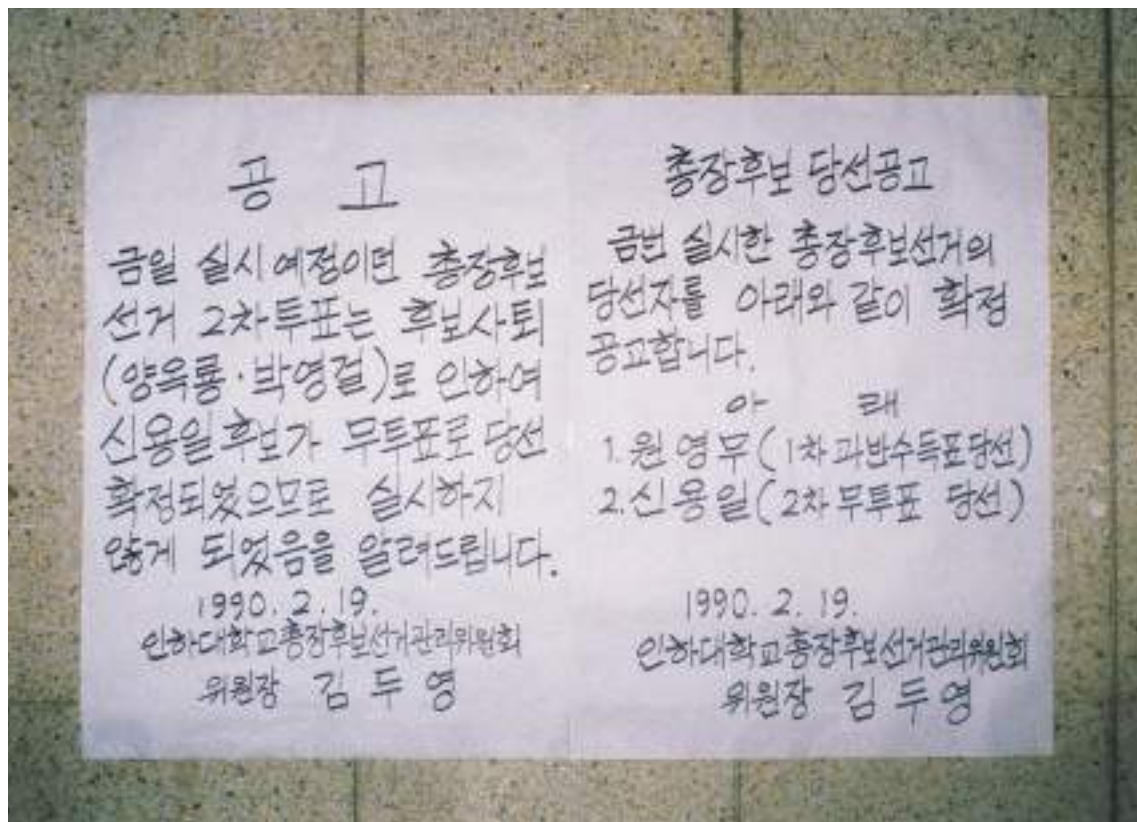 공 고
금일 실시 예정이던 총장후보
선거 2차투표는 후보사퇴
(양옥룡·박영걸)로 인하여
신용일후보가 무투표로 당선
확정되었으므로 실시하지
않게 되었음을 알려드립니다.
1990. 2. 19.
인하대학교총장후보선거관리위원회
위원장 김 두 영
총장후보 당선공고
금번 실시한 총장후보선거의
당선자를 아래와 같이 확정
공고합니다.
아 래
1. 원영무(1차과반수득표당선)
2. 신용일(2차무투표 당선)
1990. 2. 19.
인하대학교총장후보선거관리위원회
위원장 김 두 영